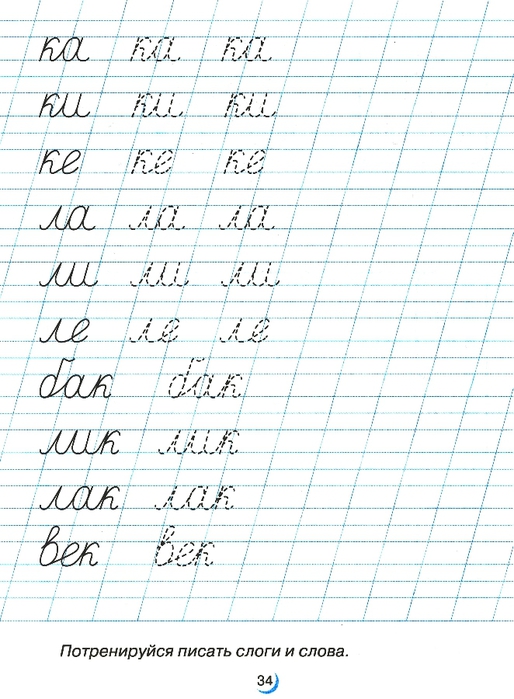 ка ка ка
ки ки ки
ке ке ке
ла ла ла
ли ли ли
ле ле ле
бак бак
лик лик
лак лак
век век
Потренируйся писать слоги и слова.
34